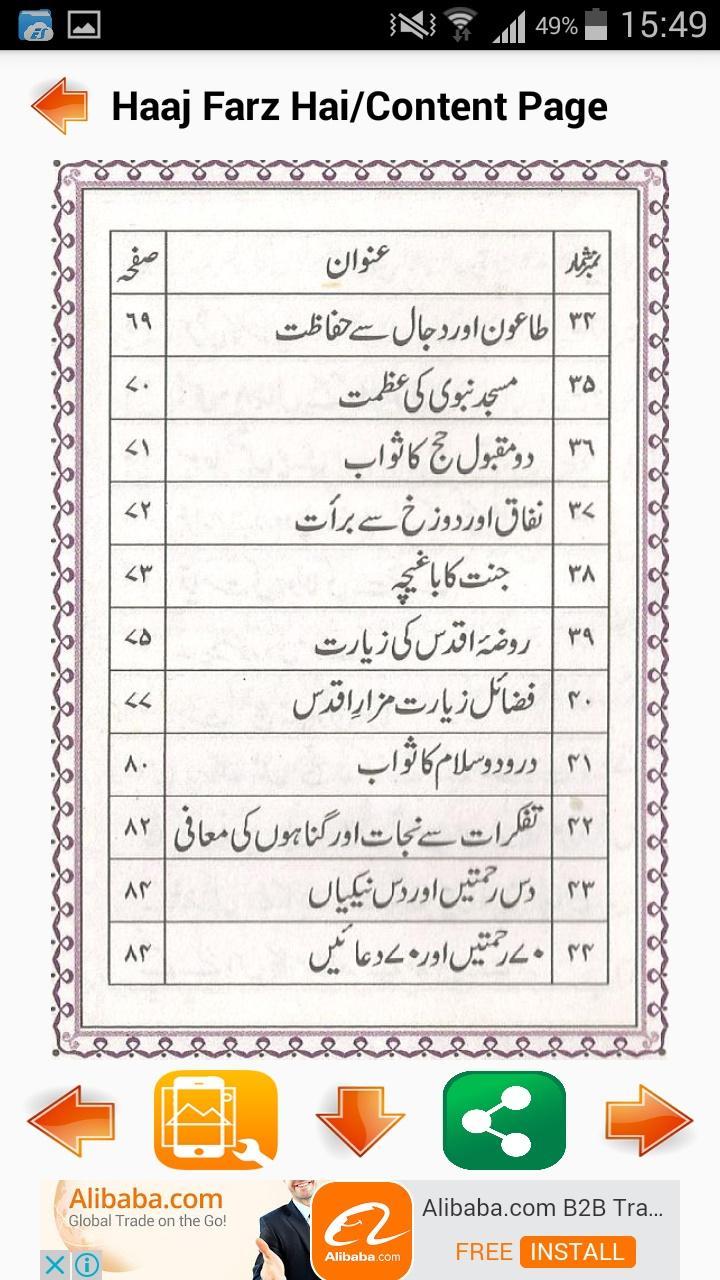 49% 15:49
Haaj Farz Hai/Content Page
نمبرشمار عنوان صفحہ
۳۴ طاعون اور دجال سے حفاظت ۶۹
۳۵ مسجد نبوی کی عظمت ۷۰
۳۶ دو مقبول حج کا ثواب ۷۱
۳۷ نفاق اور دوزخ سے برأت ۷۲
۳۸ جنت کا باغیچہ ۷۳
۳۹ روضۂ اقدس کی زیارت ۷۵
۴۰ فضائل زیارت مزارِ اقدس ۷۷
۴۱ درود و سلام کا ثواب ۸۰
۴۲ تفکرات سے نجات اور گناہوں کی معافی ۸۲
۴۳ دس رحمتیں اور دس نیکیاں ۸۴
۴۴ ۷۰ رحمتیں اور ۷۰ دعائیں ۸۴
Alibaba.com
Global Trade on the Go!
Alibaba.com
Alibaba.com B2B Tra...
FREE INSTALL